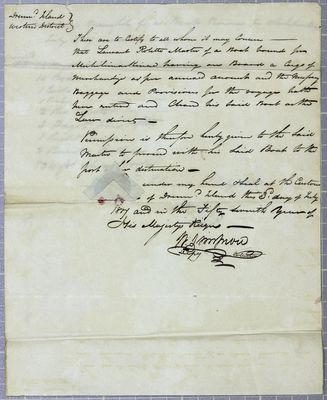 Drumd Island
Western District
These are to Certify to all whom it may Concern —
that Laurent Master of a Boat bound for
Michilimackinac having on Board a Cargo of
Merchandize as per annexed account and the Necessary
Baggage and Provisions for the voyage hath
here entered and Cleared his Said Boat as the
Law directs —
Permission is therefore hereby given to the Said
Master to proceed with his Said Boat to the
port of destination —
under my hand & Seal at the Custom
of Drumd Island this day of July
and in the Fifty Seventh Year of
His Majestys Reign —